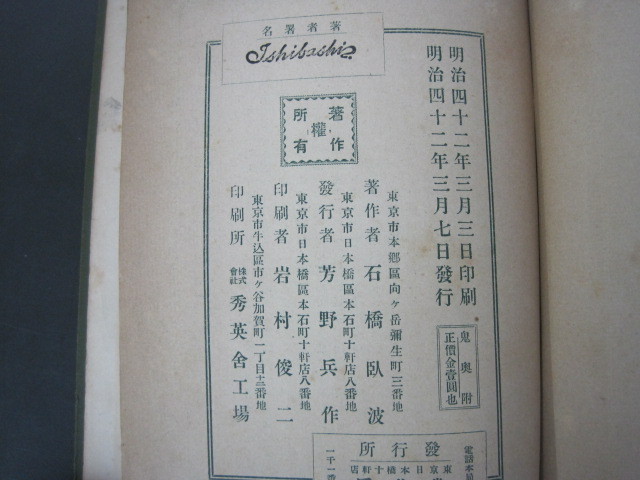 明治四十二年三月三日印刷
明治四十二年三月七日發行
鬼奧附
正價金壹圓也
著者署名
Ishibashi
著作權所有
東京市本鄕區向ヶ岳彌生町三番地
著作者 石橋臥波
東京市日本橋區本石町十軒店八番地
發行者 芳野兵作
東京市日本橋區本石町十軒店八番地
印刷者 岩村俊二
東京市牛込區市ヶ谷加賀町一丁目十二番地
印刷所 株式會社 秀英舍工場
發行所